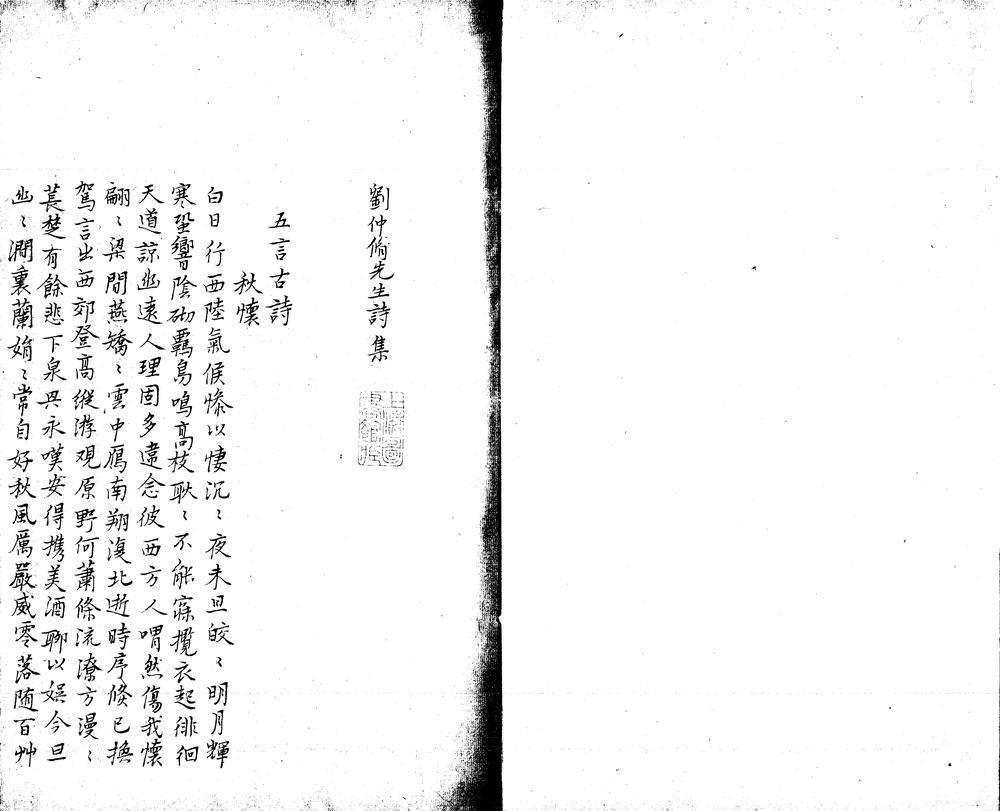 劉仲脩先生詩集
五言古詩
秋懷
白日行西陸氣候慘以悽沉〻夜未旦皎〻明月輝
寒蛩響陰砌羈鳥鳴高枝耿〻不能寐攬衣起徘徊
天道諒幽遠人理固多違念彼西方人喟然傷我懷
翩〻梁間燕矯〻雲中鴈南翔復北逝時序倐已換
駕言出西郊登高縱游观原野何蕭條流潦方漫〻
萇楚有餘悲下泉興永嘆安得携美酒聊以娱今旦
幽〻澗裏蘭娟〻常自好秋風厲嚴威零落随百艸